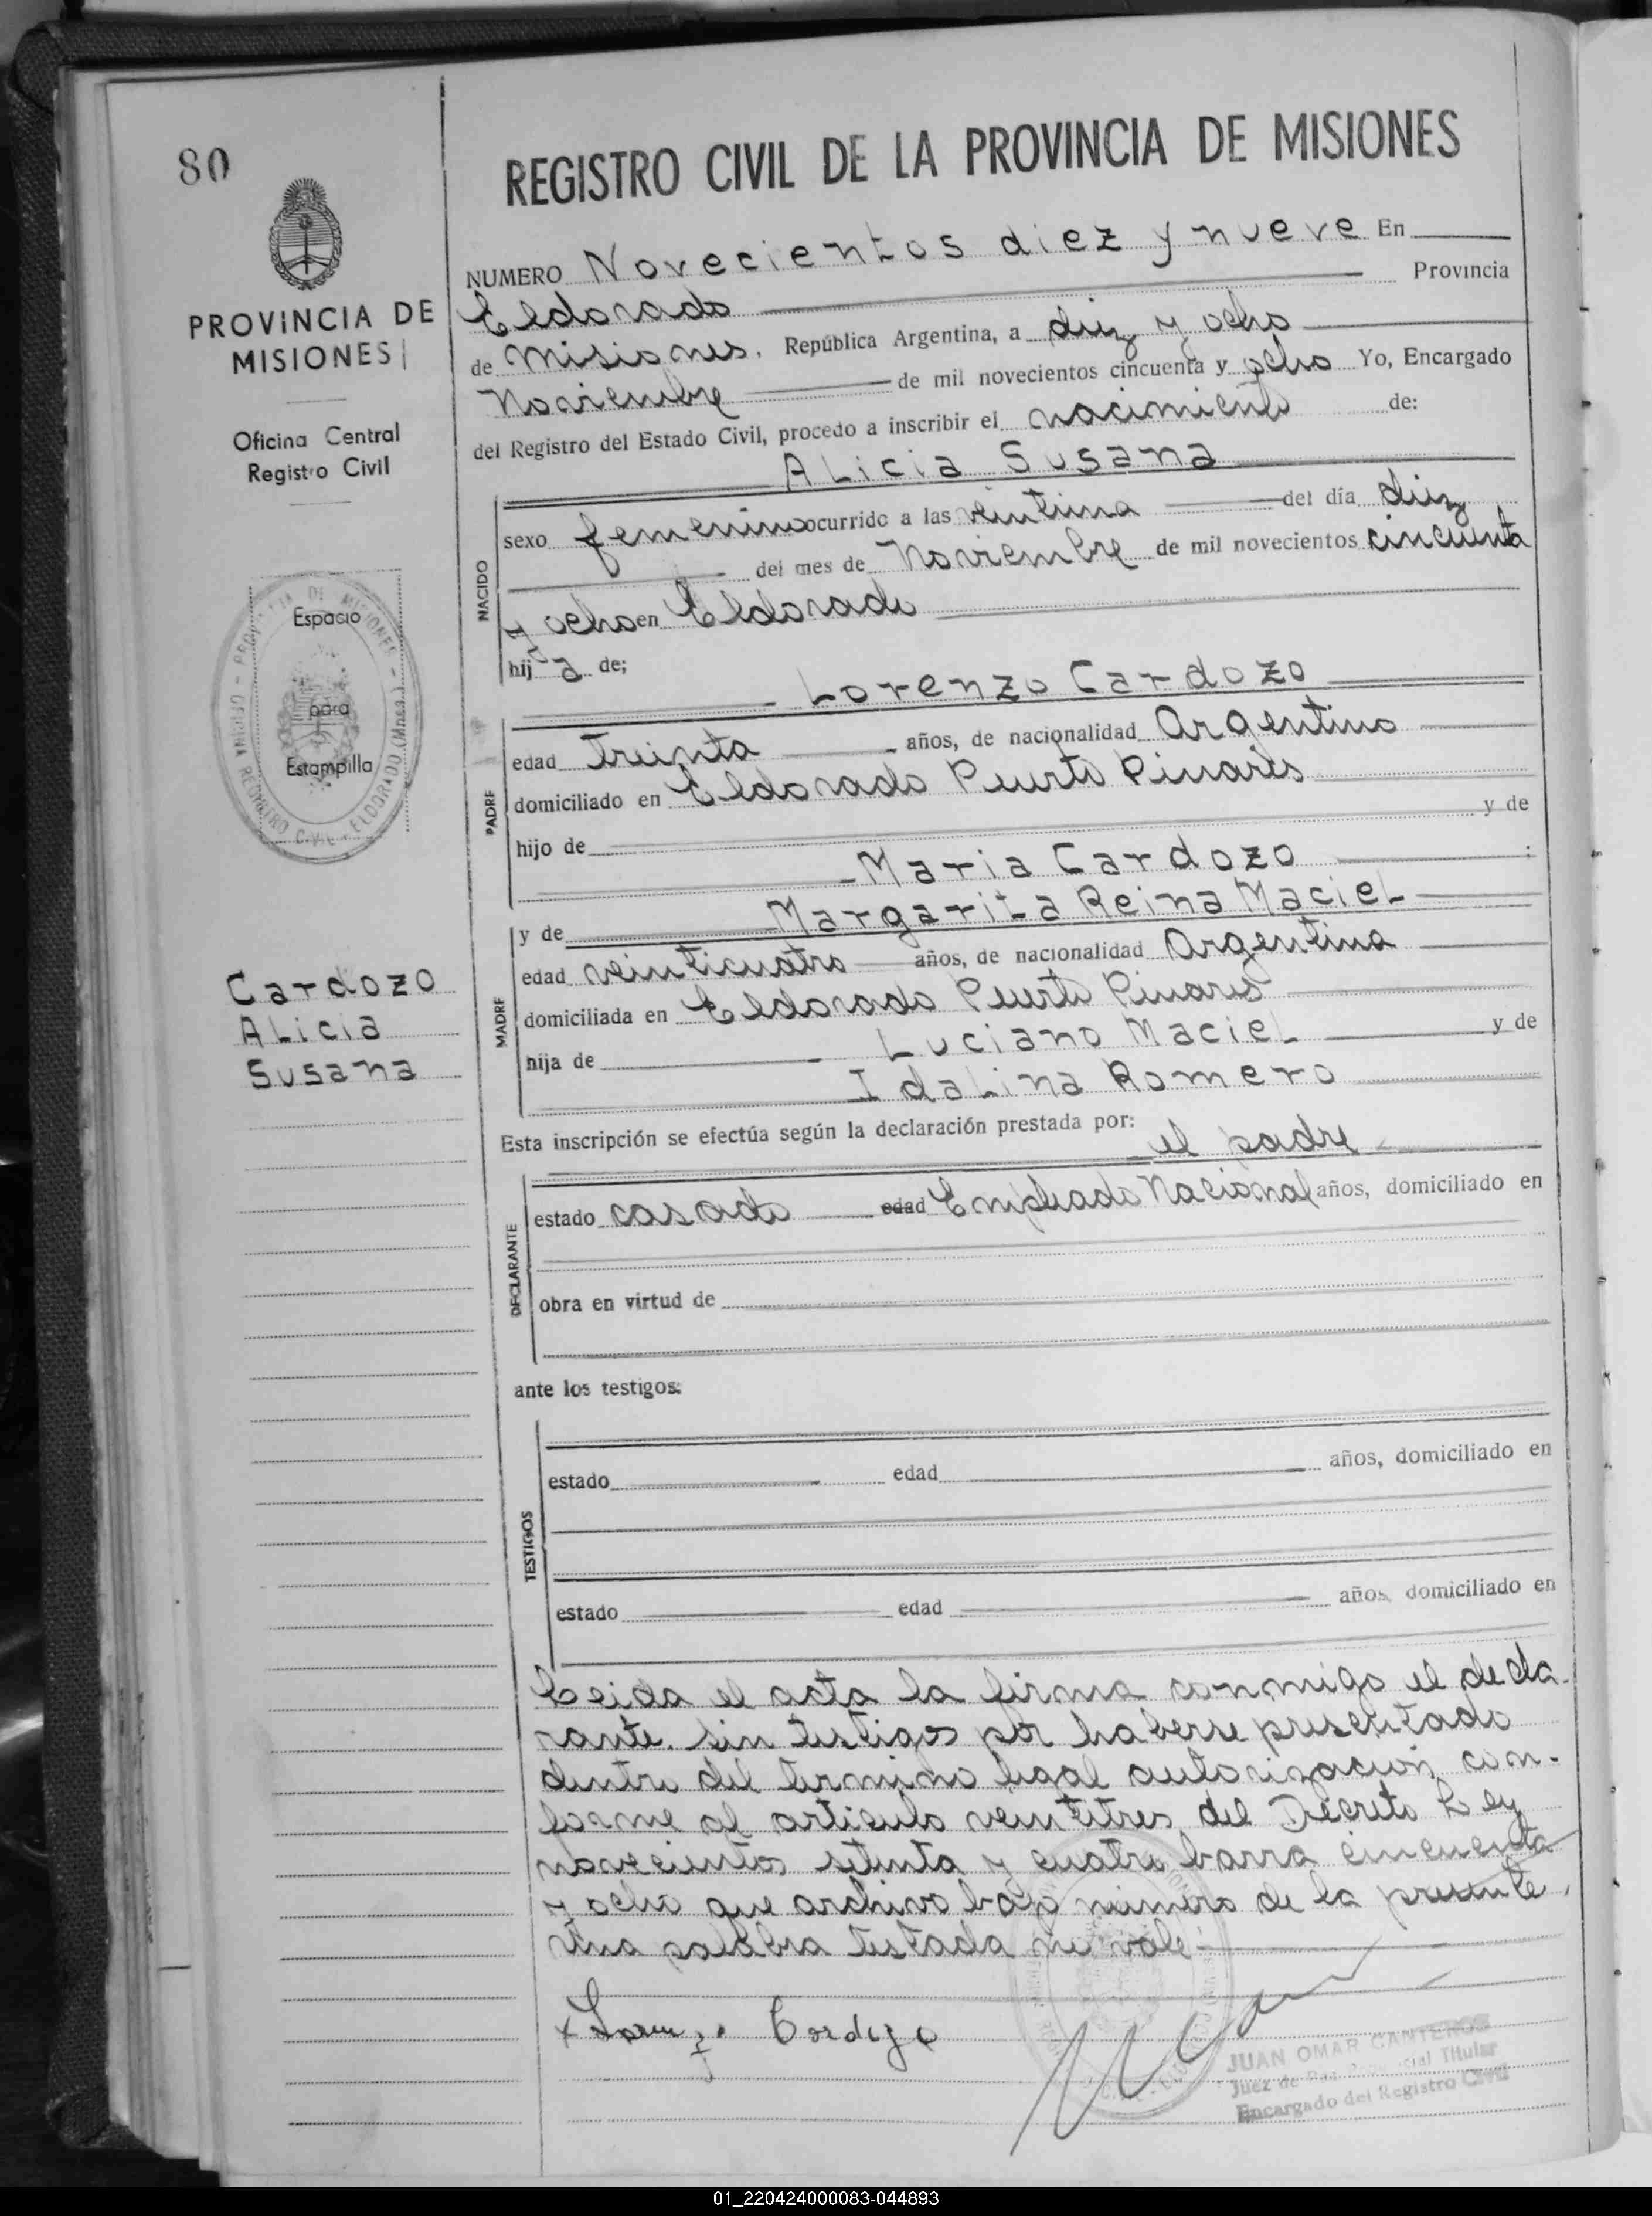 80
REGISTRO CIVIL DE LA PROVINCIA DE MISIONES
PROVINCIA DE
MISIONES
Oficina Central
Registro Civil
Espacio
para
Estampilla
Cardozo
Alicia
Susana
NUMERO Novecientos diez y nueve En
Eldorado Provincia
de Misiones, República Argentina, a diez y ocho
Noviembre de mil novecientos cincuenta y ocho Yo, Encargado
del Registro del Estado Civil, procedo a inscribir el nacimiento de:
Alicia Susana
NACIDO
sexo femenino ocurrido a las veintiuna del día diez
del mes de Noviembre de mil novecientos cincuenta
y ocho en Eldorado
hij a de;
Lorenzo Cardozo
PADRE
edad treinta años, de nacionalidad Argentino
domiciliado en Eldorado Puerto Pinares
hijo de y de
Maria Cardozo
y de Margarita Reina Maciel
MADRE
edad veinticuatro años, de nacionalidad Argentina
domiciliada en Eldorado Puerto Pinares
hija de Luciano Maciel y de
Idalina Romero
Esta inscripción se efectúa según la declaración prestada por:
el padre
DECLARANTE
estado casado edad Empleado Nacional años, domiciliado en
obra en virtud de
ante los testigos:
TESTIGOS
estado edad años, domiciliado en
estado edad años, domiciliado en
Leida el acta la firma conmigo el decla-
rante. sin testigos por haberse presentado
dentro del termino legal autorizacion con-
forme al articulo veintitres del Decreto Ley
novecientos setenta y cuatro barra cincuenta
y ocho que archivo bajo número de la presente,
Una palabra testada no vale
x Lorenzo Cardozo
JUAN OMAR CANTEROS
Juez de Paz Titular
Encargado del Registro Civil
01_220424000083-044893